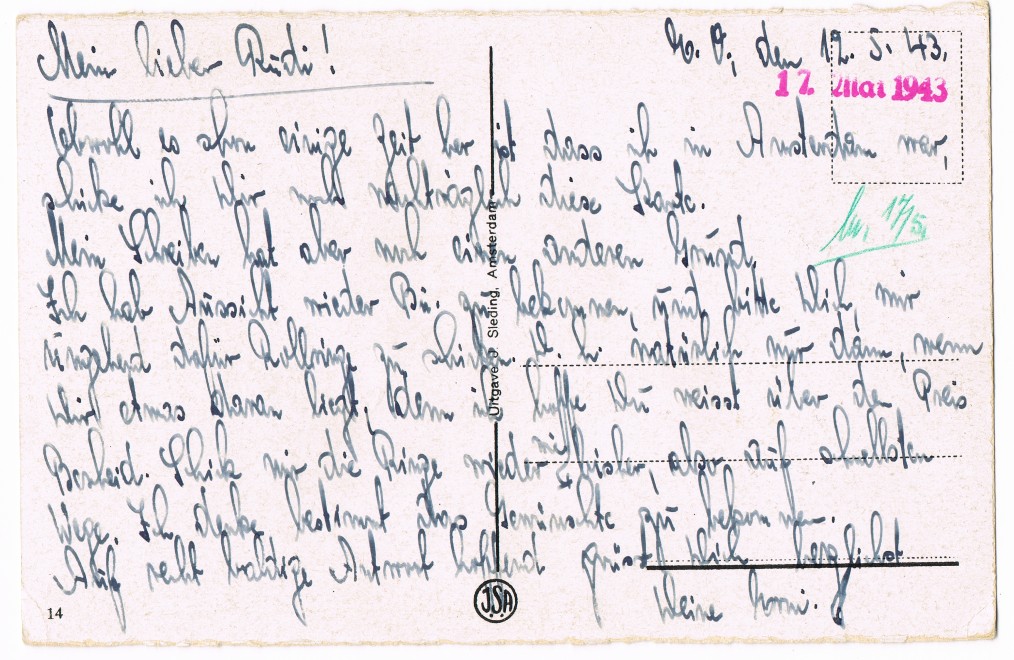 Mein lieber Rudi!
M. O., den 12. 5. 43.
17. Mai 1943
Obwohl es schon einige Zeit her ist dass ich in Amsterdam war,
schicke ich Dir noch nachträglich diese Karte.
17/5.
Mein Schreiben hat aber noch einen anderen Grund.
Ich hab Aussicht wieder Bü. zu bekommen, und bitte Dich, mir
umgehend dafür Rollringe zu schicken. D. h. natürlich nur dann, wenn
Dir etwas daran liegt, denn ich hoffe Du weisst über den Preis
Bescheid. Schick mir die Ringe wieder wie bisher, also auf schnellsten
Wege. Ich denke bestimmt das Gewünschte zu bekommen.
Auf recht baldige Antwort hoffend grüsst Dich herzlichst
Deine
Uitgave J. Sleding, Amsterdam
J.S.A
14